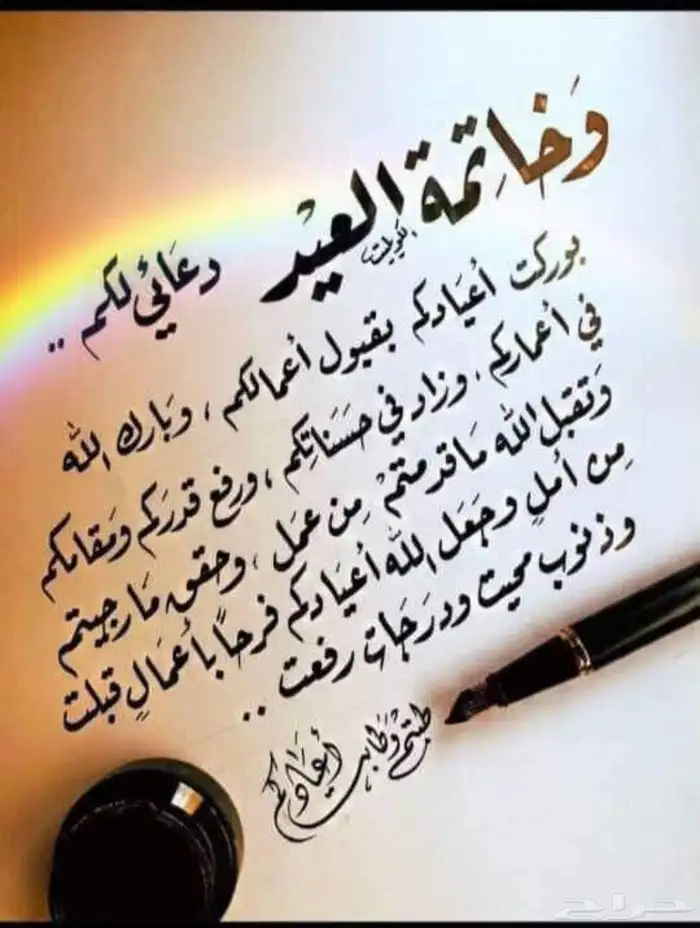 وَخَاتِمة العيْد دعَائي لكم ..
بوركت أعيَادكم بقبول أعمالكم ، وبَارك الله
في أعماركم ، وزاد في حسَنَاتِكم ، ورفع قدرَكم ومقامكم
وَتقبل الله مَاقدمتمْ مِن عمَل ، وحقق مَارجيتم
مِن أملٍ وجَعَل الله أعيَادكم فرحاً بأعمَالٍ قبلت
وذنوب محيت ودرَجَات رفعت ..
طبتم وَطابت أعيَادكم
حراج